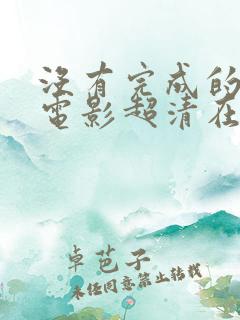 没有完成的
电影超清在
卓芭子
未经同意禁止转载